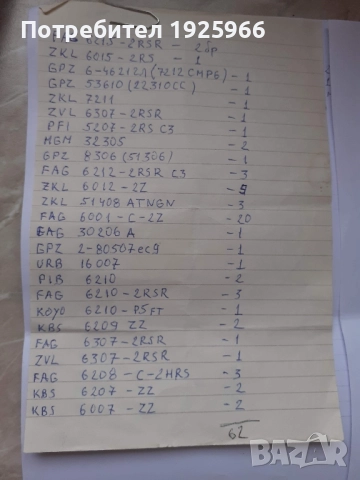 Потребител 1925966
FAG 6015-2RSR - 2бр
ZKL 6015-2RS - 1
GPZ 6-46212Л (7212CMP6) - 1
GPZ 53610 (22310CC) - 1
ZKL 7211 - 1
ZVL 6307-2RSR - 1
PFI 5207-2RS C3 - 1
MGM 32305 - 2
GPZ 8306 (51306) - 1
FAG 6212-2RSR C3 - 3
ZKL 6012-2Z - 9
ZKL 51408 ATNGN - 3
FAG 6001-C-2Z - 20
FAG 30206 A - 1
GPZ 2-80507ес9 - 1
URB 16007 - 1
PIB 6210 - 2
FAG 6210-2RSR - 3
KOYO 6210-P5FT - 1
KBS 6209 ZZ - 2
FAG 6307-2RSR - 1
ZVL 6307-2RSR - 1
FAG 6208-C-2HRS - 3
KBS 6207-ZZ - 2
KBS 6007-ZZ - 2
62
bazar